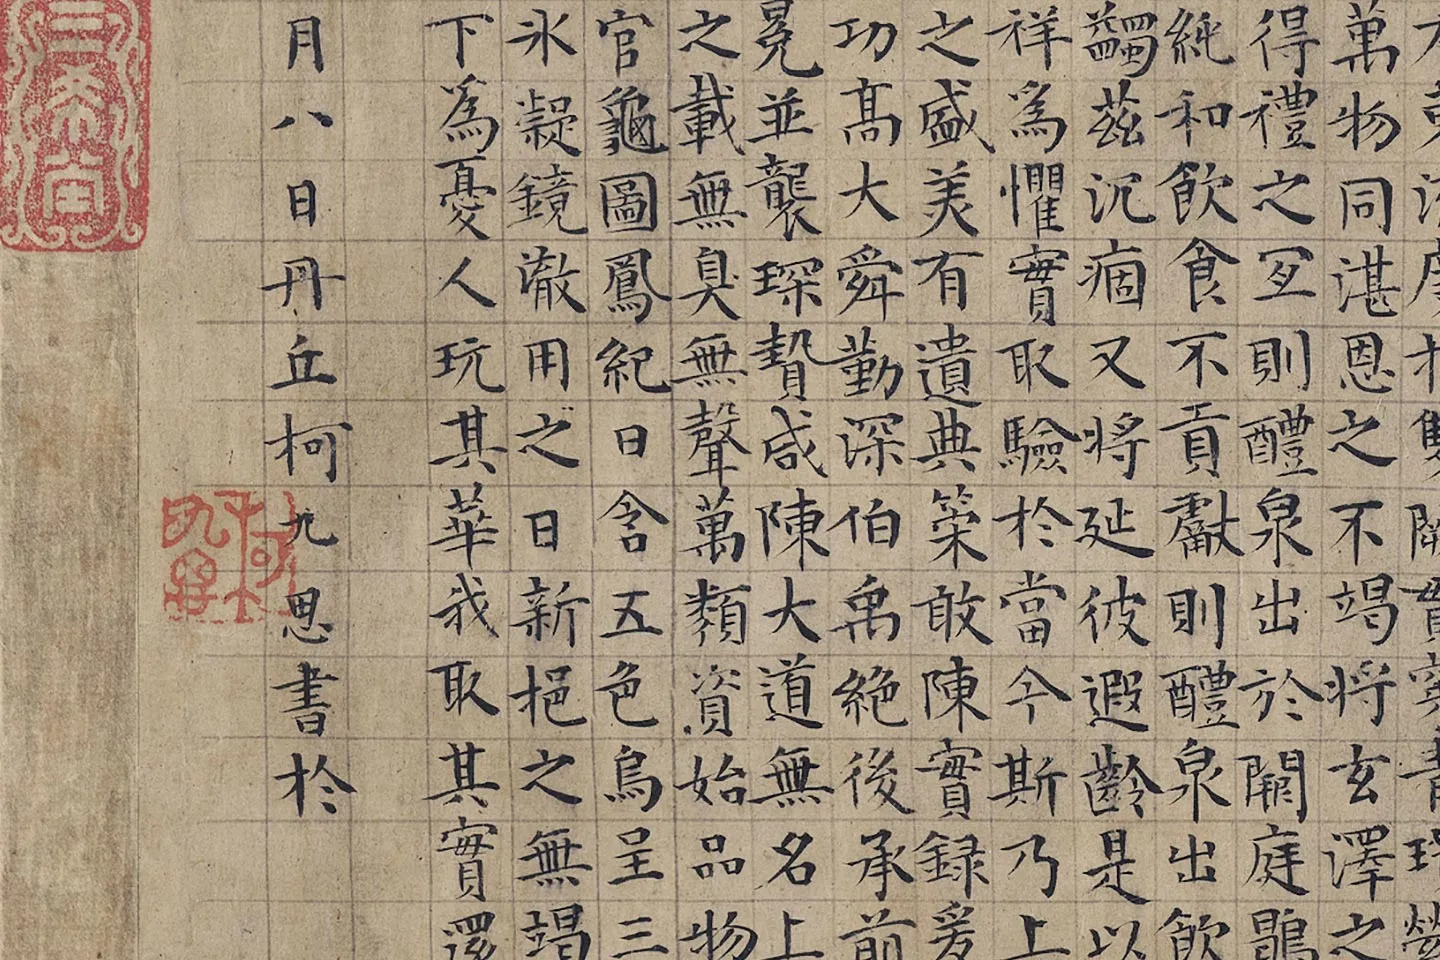 萬物同湛恩之不竭將玄澤之
得禮之宜則醴泉出於闕庭鶡
純和飲食不貢獻則醴泉出飲
蠲茲沉痼又將延彼遐齡是以
祥為懼實取驗於當今斯乃上
之盛美有遺典策敢陳實録爰
功髙大舜勤深伯禹絶後承前
冕並襲琛贄咸陳大道無名上
之載無臭無聲萬類資始品物
官龜圖鳳紀日含五色烏呈三
氷凝鏡澈用之日新挹之無竭
下為憂人玩其華我取其實還
月八日丹丘柯九思書於
三希堂